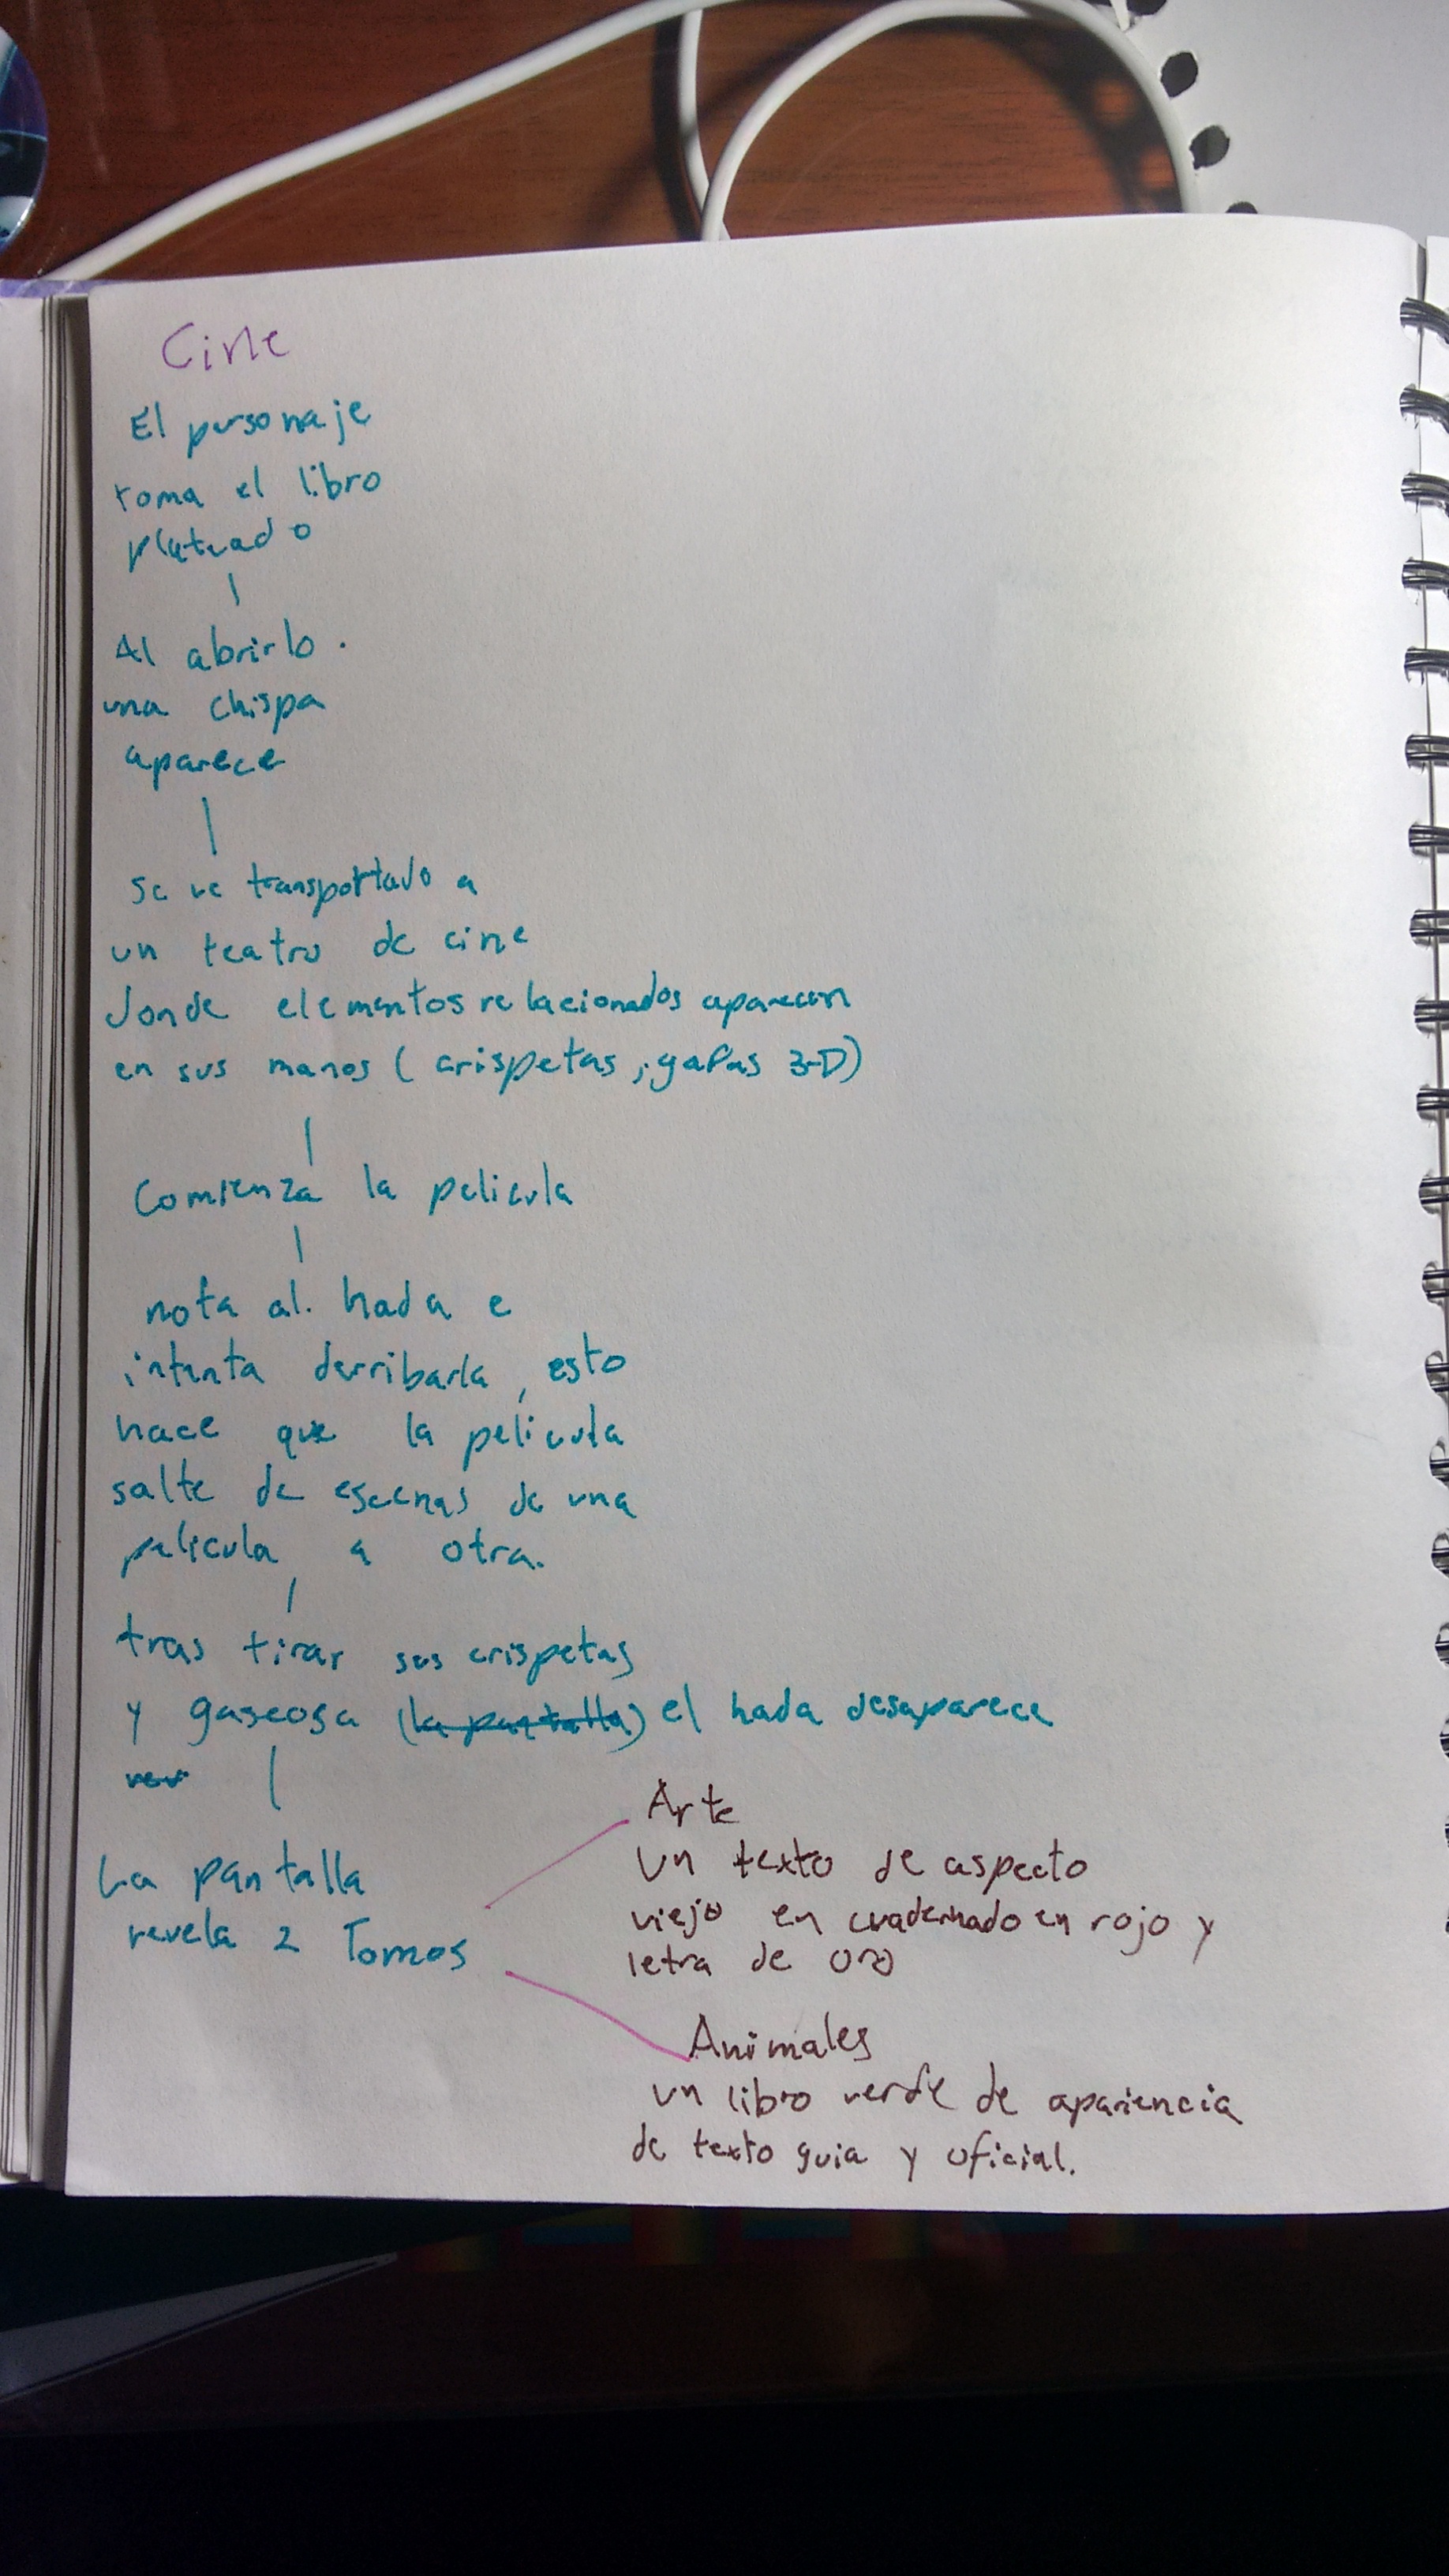 Cine
El personaje
toma el libro
plateado
Al abrirlo.
una chispa
aparece
se ve transportado a
un teatro de cine
donde elementos relacionados aparecen
en sus manos (crispetas, gafas 3-D)
Comienza la pelicula
nota al. hada e
intenta derribarla, esto
hace que la pelicula
salte de escenas de una
pelicula a otra.
tras tirar sus crispetas
y gaseosa (la pantalla) el hada desaparece
La pantalla
revela 2 Tomos
Arte
un texto de aspecto
viejo en cuadernado en rojo y
letra de oro
Animales
un libro verde de apariencia
de texto guia y oficial.